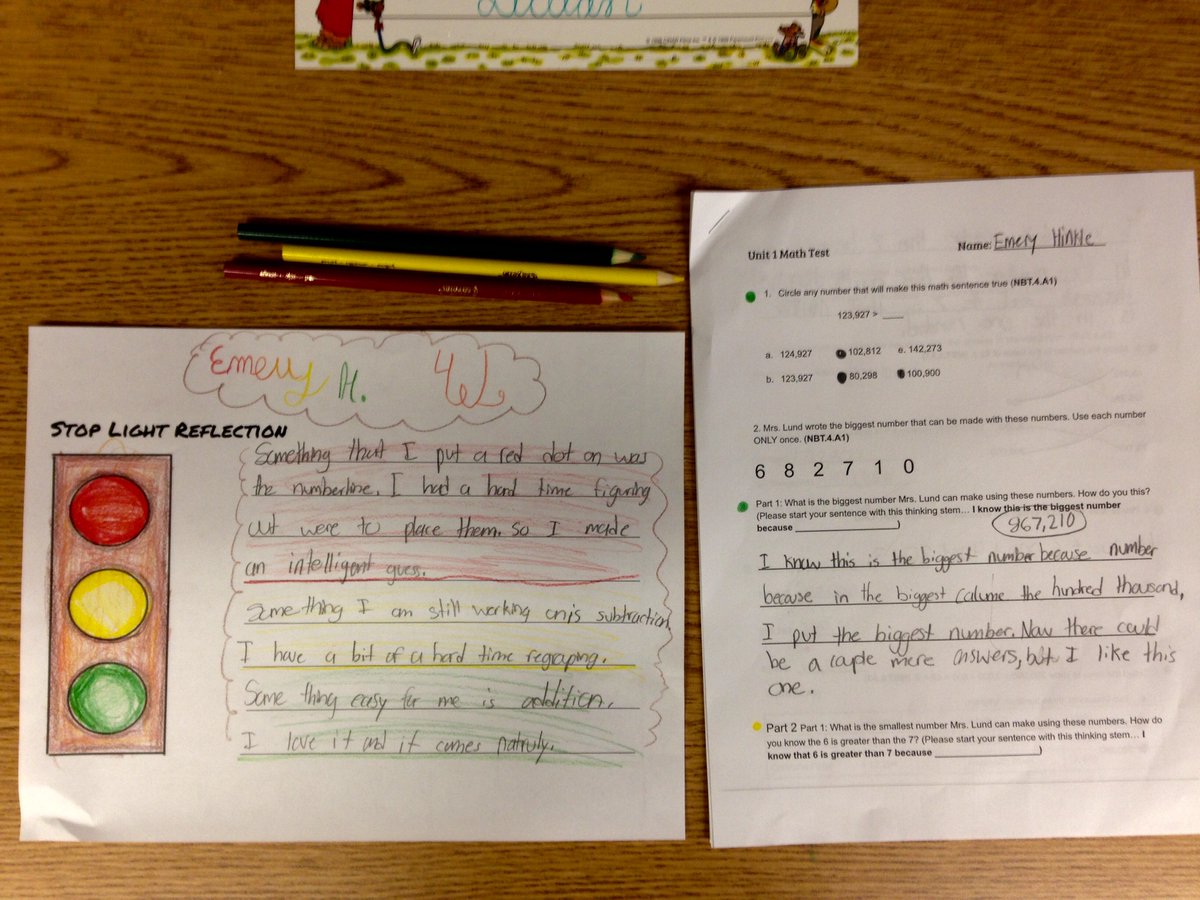 Emery H. 4W
STOP LIGHT REFLECTION
Something that I put a red dot on was
the numberline. I had a hard time figuring
out were to place them. So I made
an intelligent gues.
Something I am still working on is subtraction
I have a bit of a hard time regraping.
Some thing easy for me is addition.
I love it and it comes natruly.
Unit 1 Math Test
Name: Emery Hinkle
1. Circle any number that will make this math sentence true (NBT.4.A1)
123,927 > ____
a. 124,927 102,812 e. 142,273
b. 123,927 80,298 100,900
2. Mrs. Lund wrote the biggest number that can be made with these numbers. Use each number
ONLY once. (NBT.4.A1)
6 8 2 7 1 0
Part 1: What is the biggest number Mrs. Lund can make using these numbers. How do you this?
(Please start your sentence with this thinking stem... I know this is the biggest number
because ____________________)
867,210
I know this is the biggest number because number
because in the biggest calume the hundred thousand,
I put the biggest number. Now there could
be a caple more answers, but I like this
one.
Part 2 Part 1: What is the smallest number Mrs. Lund can make using these numbers. How do
you know the 6 is greater than the 7? (Please start your sentence with this thinking stem... I
know that 6 is greater than 7 because ____________________)